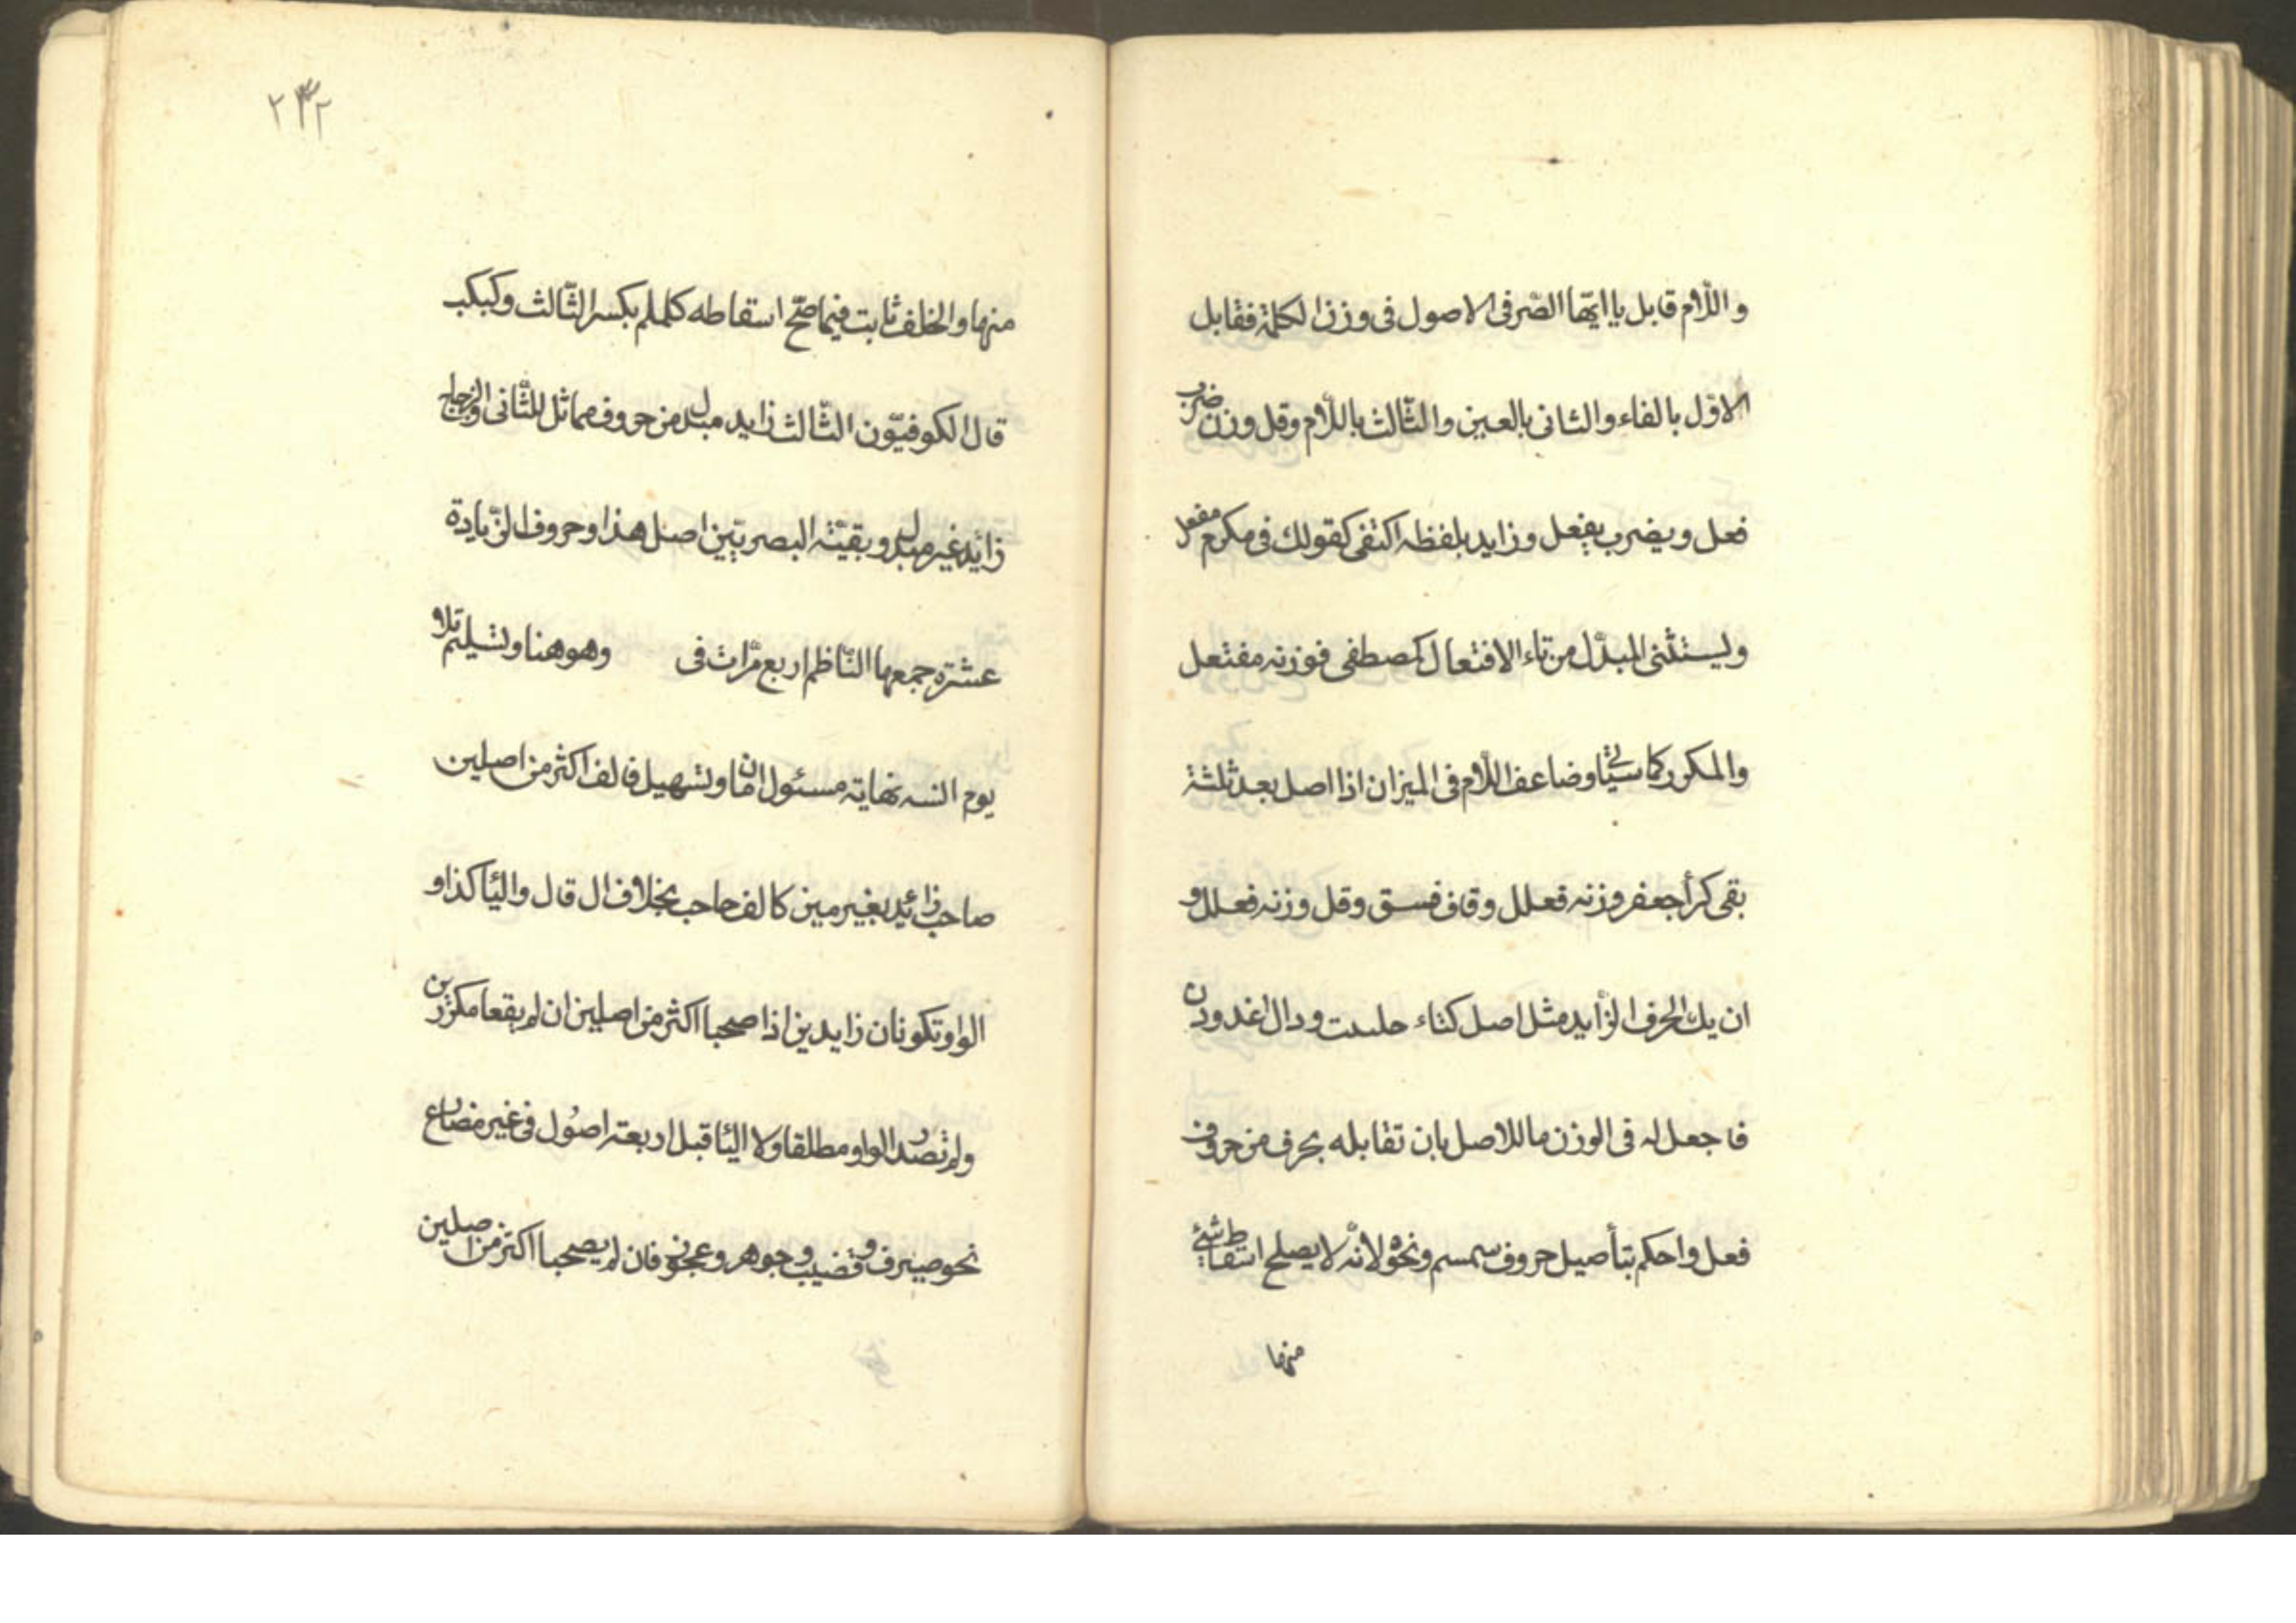 واللّام قابل يا ايّها الصّرفى الاصول فى وزن الكلمة فقابل
الاوّل بالفاء والثانى بالعين والثّالث باللّام وقل وزن ضرب
فعل ويضرب يفعل وزايد بلفظه اكتفى كقولك فى مكرم مفعل
وليستثنى المبدّل من تاء الافتعال كمصطفى فوزنه مفتعل
والمكرر كما سيأتى وضاعف اللّام فى الميزان اذا اصل بعد ثلثة
بقى كرأ جعفر وزنه فعلل وقاف فسق وقل وزنه فعلل و
ان يك الحرف الزّايد مثل اصل كتاء حلىىت ودال اغدودن
فاجعل له فى الوزن ما للاصل بان تقابله بحرف من حروف
فعل واحكم بتأصيل حروف سمسم ونحوه لانّه لا يصلح اسقاط شئ
منها
٢٣٢
منها والخلف ثابت فيما صحّ اسقاطه كلملم بكسر الثّالث وكبكب
قال الكوفيّون الثّالث زايد مبدل من حروف مماثل للثّانى والزجاج
زائد غير مبدل وبقيّة البصريّين اصل هذا وحروف الزّيادة
عشرة جمعها النّاظم اربع مرّات فى وهو هنا وتسليم تلا
يوم انسه نهاية مسئول امان وتسهيل فالف اكثر من اصلين
صاحب زائد بغير مين كالف حاجب بخلاف ال قال واليا كذا و
الواو تكونان زايدين اذا صحبا اكثر من اصلين ان لم يقعا مكرّرين
ولم تصدر الواو مطلقا ولا اليا قبل اربعة اصُول فى غير مضارع
نحو صيرف و قضيب و جوهر و عجوز فان لم يصحبا اكثر من اصلين